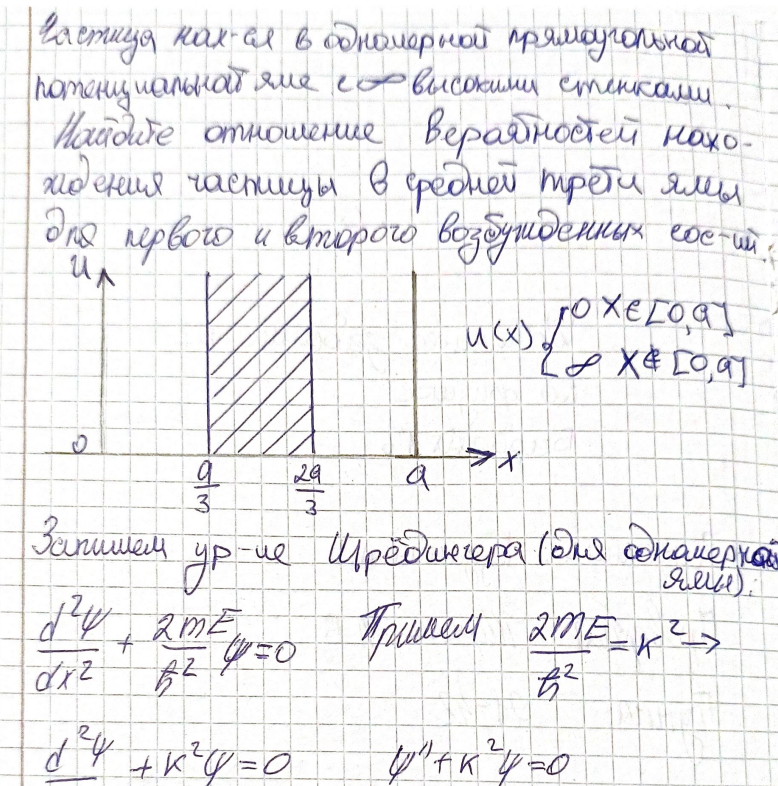 Частица нах-ся в одномерной прямоугольной
потенциальной яме с ∞ высокими стенками.
Найдите отношение вероятностей нахо-
ждения частицы в средней трети ямы
для первого и второго возбужденных сос-ий.
U
U(x) { 0 x∈[0,a]
∞ x∉[0,a]
0 a/3 2a/3 a x
Запишем ур-ие Шрёдингера (для одномерной
ямы):
d²ψ/dx² + 2mE/ħ² ψ=0 Примем 2mE/ħ² = k² →
d²ψ + k²ψ=0 ψ'' + k²ψ=0